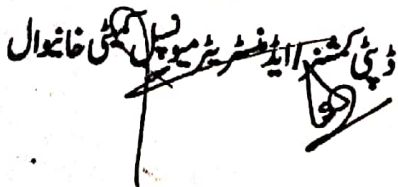 ڈپٹی کمشنر/ایڈمنسٹریٹر میونسپل کمیٹی خانیوال